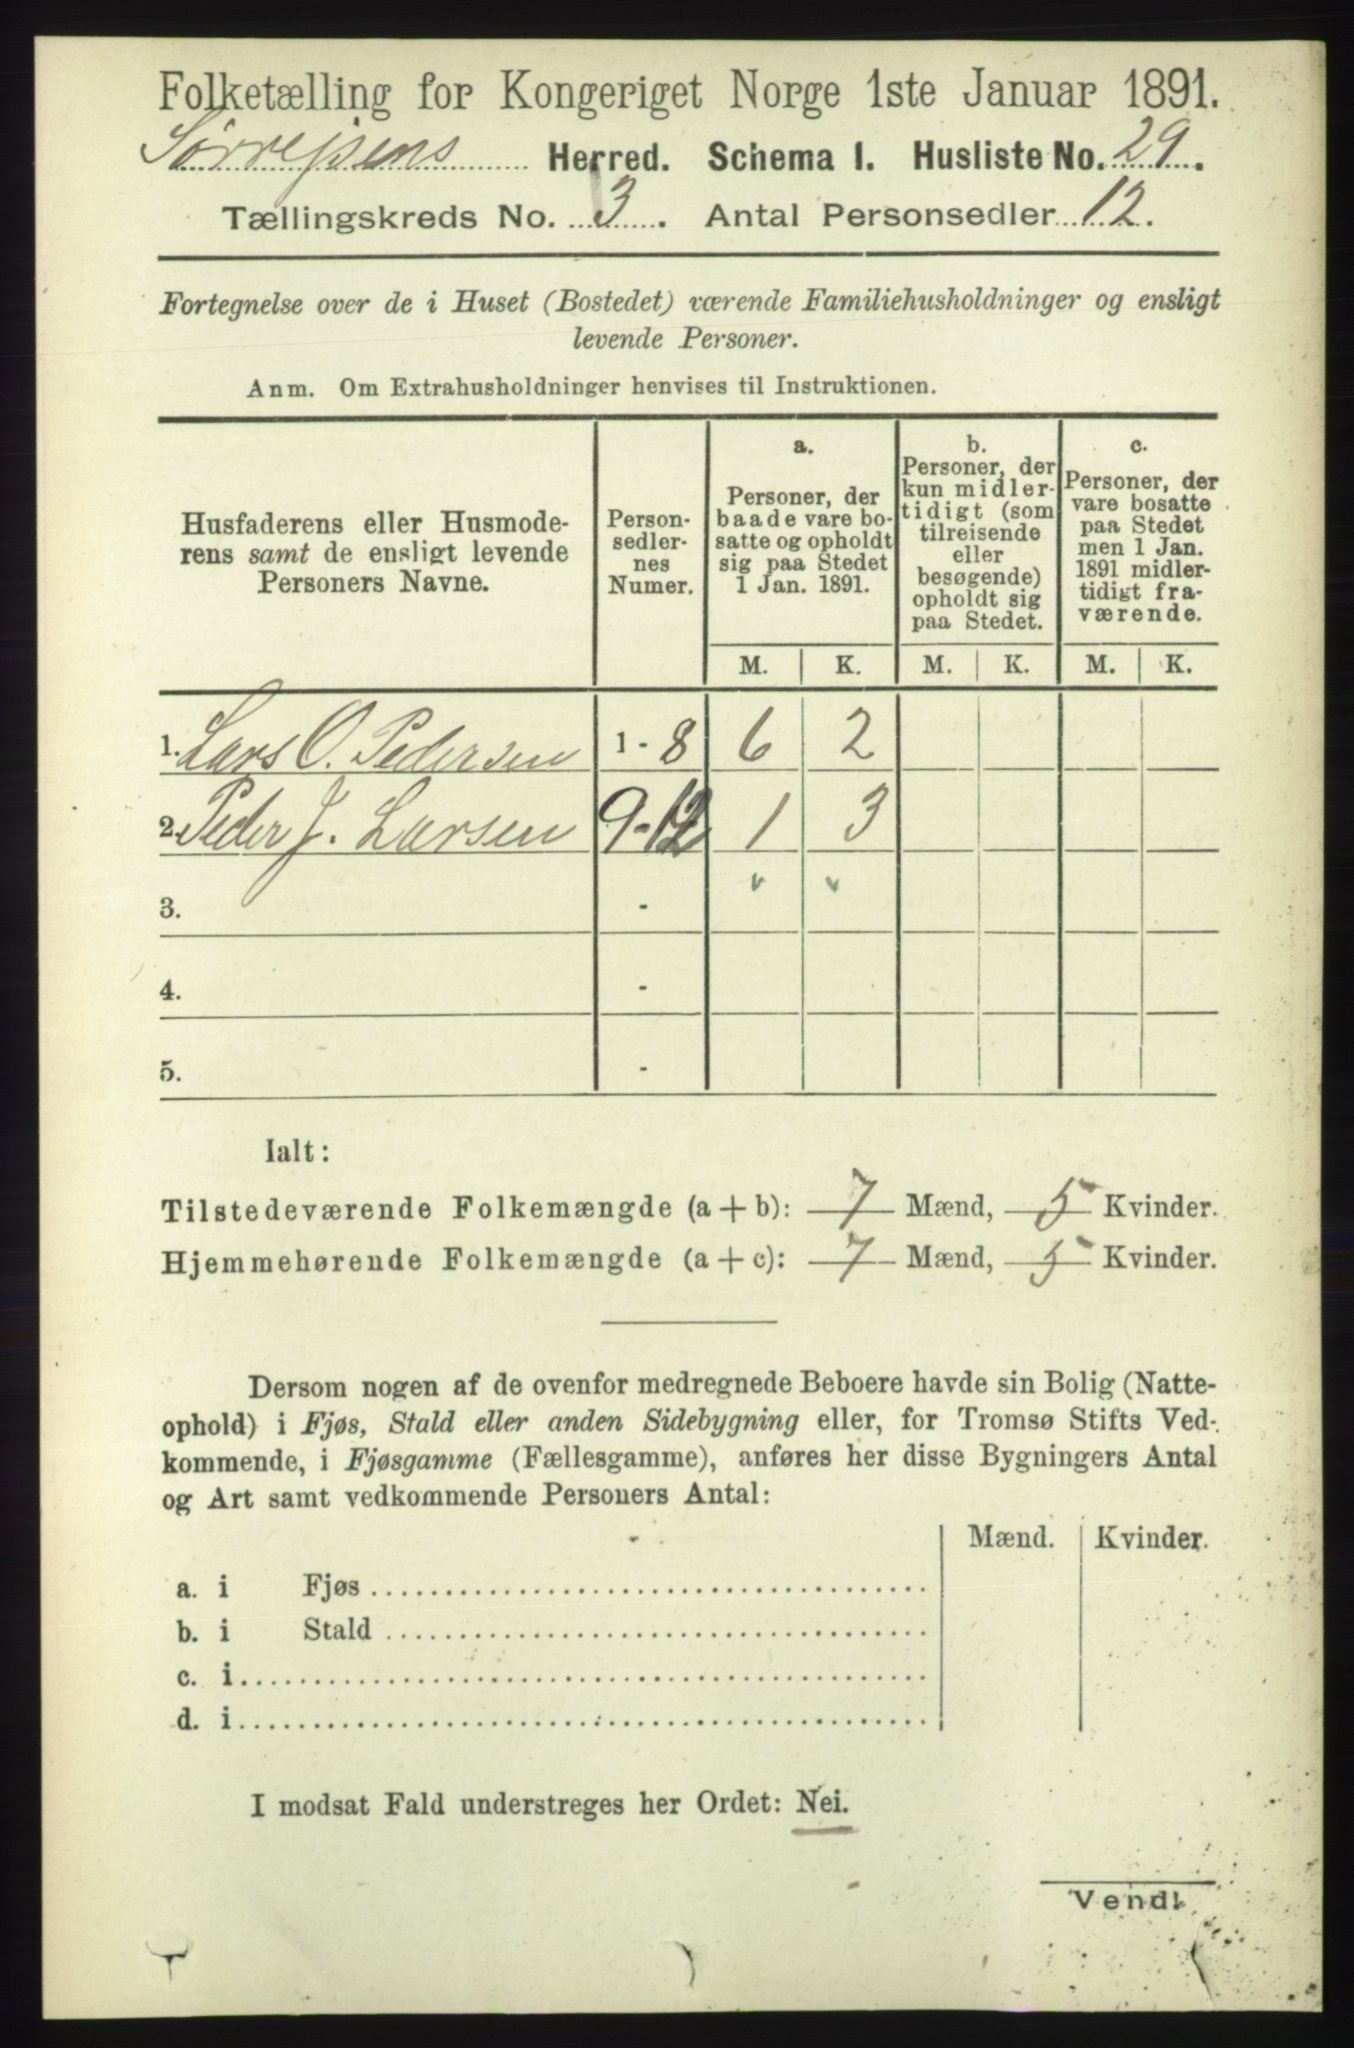 Folketælling for Kongeriget Norge 1ste Januar 1891.
Sørrejsens Herred. Schema I. Husliste No. 29.
Tællingskreds No. 3. Antal Personsedler 12.
Fortegnelse over de i Huset (Bostedet) værende Familiehusholdninger og ensligt
levende Personer.
Anm. Om Extrahusholdninger henvises til Instruktionen.
Husfaderens eller Husmode-
rens samt de ensligt levende
Personers Navne.
Person-
sedler-
nes
Numer.
a.
Personer, der
baade vare bo-
satte og opholdt
sig paa Stedet
1 Jan. 1891.
b.
Personer, der
kun midler-
tidigt (som
tilreisende
eller
besøgende)
opholdt sig
paa Stedet.
c.
Personer, der
vare bosatte
paa Stedet
men 1 Jan.
1891 midler-
tidigt fra-
værende.
M. K. M. K. M. K.
1. Lars O. Pedersen 1 - 8 6 2
2. Peder J. Larsen 9-12 1 3
3. - " "
4. -
5. -
Ialt:
Tilstedeværende Folkemængde (a + b): 7 Mænd, 5 Kvinder.
Hjemmehørende Folkemængde (a + c): 7 Mænd, 5 Kvinder.
Dersom nogen af de ovenfor medregnede Beboere havde sin Bolig (Natte-
ophold) i Fjøs, Stald eller anden Sidebygning eller, for Tromsø Stifts Ved-
kommende, i Fjøsgamme (Fællesgamme), anføres her disse Bygningers Antal
og Art samt vedkommende Personers Antal:
Mænd. Kvinder.
a. i Fjøs
b. i Stald
c. i
d. i
I modsat Fald understreges her Ordet: Nei.
Vend!